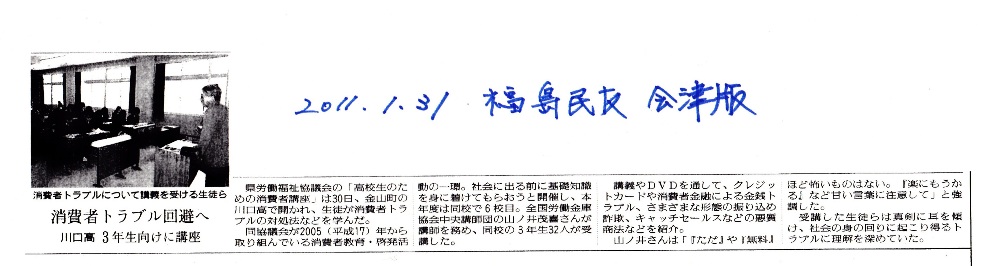 2011.1.31 福島民友 会津版
消費者トラブルについて講義を受ける生徒ら
消費者トラブル回避へ
川口高 3年生向けに講座
県労働福祉協議会の「高校生のた
めの消費者講座」は30日、金山町の
川口高で開かれ、生徒が消費者トラ
ブルの対処法などを学んだ。
同協議会が2005(平成17)年から
取り組んでいる消費者教育・啓発活
動の一環。社会に出る前に基礎知識
を身に着けてもらおうと開催し、本
年度は同校で6校目。全国労働金庫
協会中央講師団の山ノ井茂喜さんが
講師を務め、同校の3年生32人が受
講した。
講義やDVDを通して、クレジッ
トカードや消費者金融による金銭ト
ラブル、さまざまな形態の振り込め
詐欺、キャッチセールスなどの悪質
商法などを紹介。
山ノ井さんは「『ただ』や『無料』
ほど怖いものはない。『楽にもうか
る』など甘い言葉に注意して」と強
調した。
受講した生徒らは真剣に耳を傾
け、社会の身の回りに起こり得るト
ラブルに理解を深めていた。